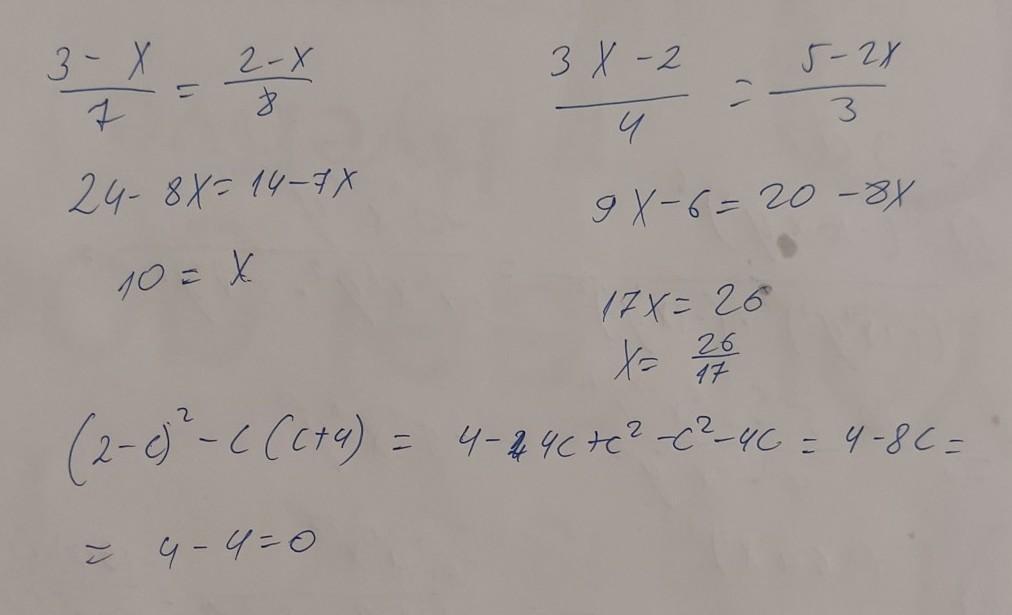 3 - x / 7 = 2 - x / 8
24 - 8x = 14 - 7x
10 = x
3x - 2 / 4 = 5 - 2x / 3
9x - 6 = 20 - 8x
17x = 26
x = 26/17
(2 - c)² - c (c + 4) = 4 - 4c + c² - c² - 4c = 4 - 8c =
= 4 - 4 = 0